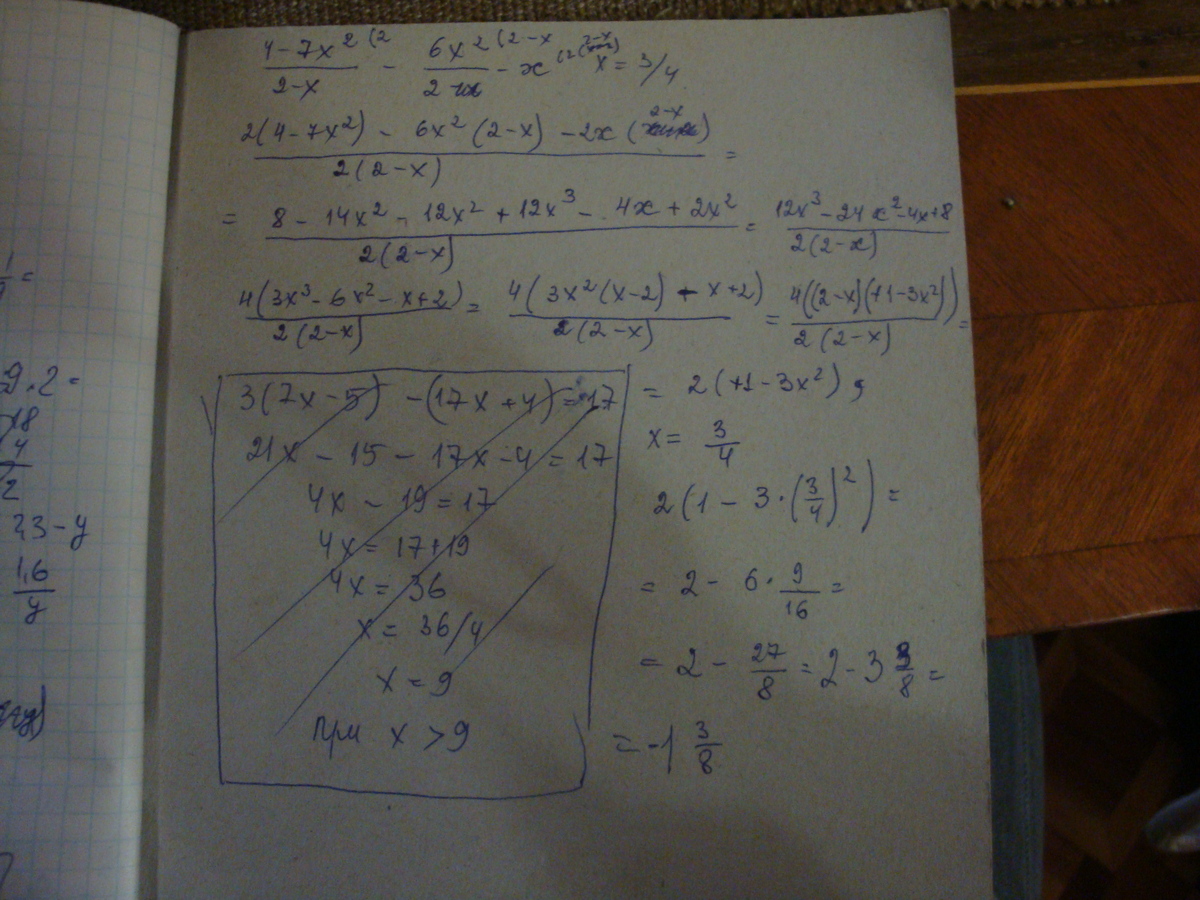 (4-7x²)/(2-x) (2 - 6x²/2 (2-x - x (2(2-x) x = 3/4
(2(4-7x²) - 6x²(2-x) - 2x(2-x))/(2(2-x)) =
= (8 - 14x² - 12x² + 12x³ - 4x + 2x²)/(2(2-x)) = (12x³ - 24x² - 4x + 8)/(2(2-x))
4(3x³ - 6x² - x + 2)/(2(2-x)) = 4(3x²(x-2) - x + 2)/(2(2-x)) = 4((2-x)(+1-3x²))/(2(2-x)) =
= 2(+1-3x²),
x = 3/4
2(1 - 3·(3/4)²) =
= 2 - 6·9/16 =
= 2 - 27/8 = 2 - 3 3/8 =
= -1 3/8
3(7x-5) - (17x+4) = 17
21x - 15 - 17x - 4 = 17
4x - 19 = 17
4x = 17+19
4x = 36
x = 36/4
x = 9
При x > 9
9·2 =
18
4
2
23-y
1,6/y